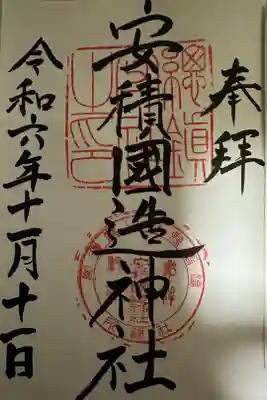 奉拝
安積國造神社
令和六年十一月十一日